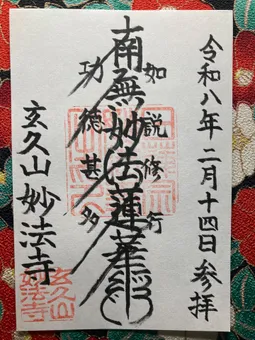 令和八年 二月十四日 参拝
如説修行
南無妙法蓮華経
功徳甚多
玄久山 妙法寺
玄久山
妙法寺